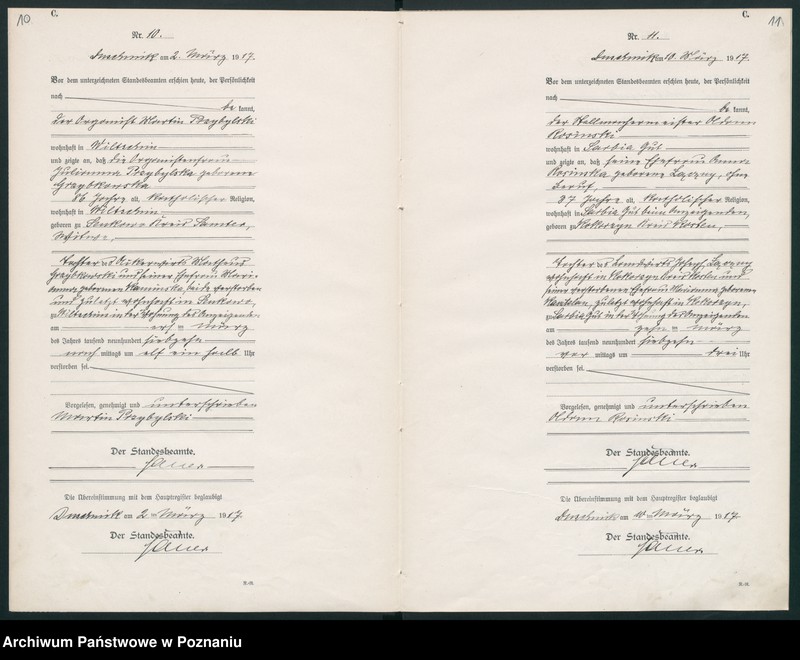 10
C.
Nr. 10.
am 2. März 1917.
Vor dem unterzeichneten Standesbeamten erschien heute, der Persönlichkeit
nach
be kannt,
der Organist Martin Przybylski
wohnhaft in
und zeigte an, daß die Organistenfrau
Julianna Przybylska geborene
Grzybkowska
86 Jahre alt, katholischer Religion,
wohnhaft in
geboren zu Kreis Samter,
Witwe,
Tochter
Grzybkowski und seiner Ehefrau Mari-
anna, geborenen Kaminska, beide verstorben
und zuletzt wohnhaft in
zu in der Wohnung des Anzeigenden
am März
des Jahres tausend neunhundert siebzehn
nach mittags um elf ein halb Uhr
verstorben sei.
Vorgelesen, genehmigt und unterschrieben
Martin Przybylski
Der Standesbeamte.
Die Übereinstimmung mit dem Hauptregister beglaubigt
am 2ten März 1917.
Der Standesbeamte.
11
C.
Nr. 11.
am 10. März 1917.
Vor dem unterzeichneten Standesbeamten erschien heute, der Persönlichkeit
nach
be kannt,
der Stellmachermeister
Rosinski
wohnhaft in Sarbia Gut
und zeigte an, daß seine Ehefrau Anna
Rosinska geborene Laczny, ohne
Beruf,
37 Jahre alt, katholischer Religion,
wohnhaft in Sarbia Gut beim Anzeigenden,
geboren zu Kokorzyn Kreis Kosten,
Tochter Landwirts Joseph Laczny
wohnhaft in Kokorzyn Kreis Kosten und
seiner verstorbenen Ehefrau Marianna geborene
zuletzt wohnhaft in Kokorzyn,
zu Sarbia Gut in der Wohnung des Anzeigenden
am zehnten März
des Jahres tausend neunhundert siebzehn
vor mittags um drei Uhr
verstorben sei.
Vorgelesen, genehmigt und unterschrieben
Rosinski
Der Standesbeamte.
Die Übereinstimmung mit dem Hauptregister beglaubigt
am 10ten März 1917.
Der Standesbeamte.
Archiwum Państwowe w Poznaniu